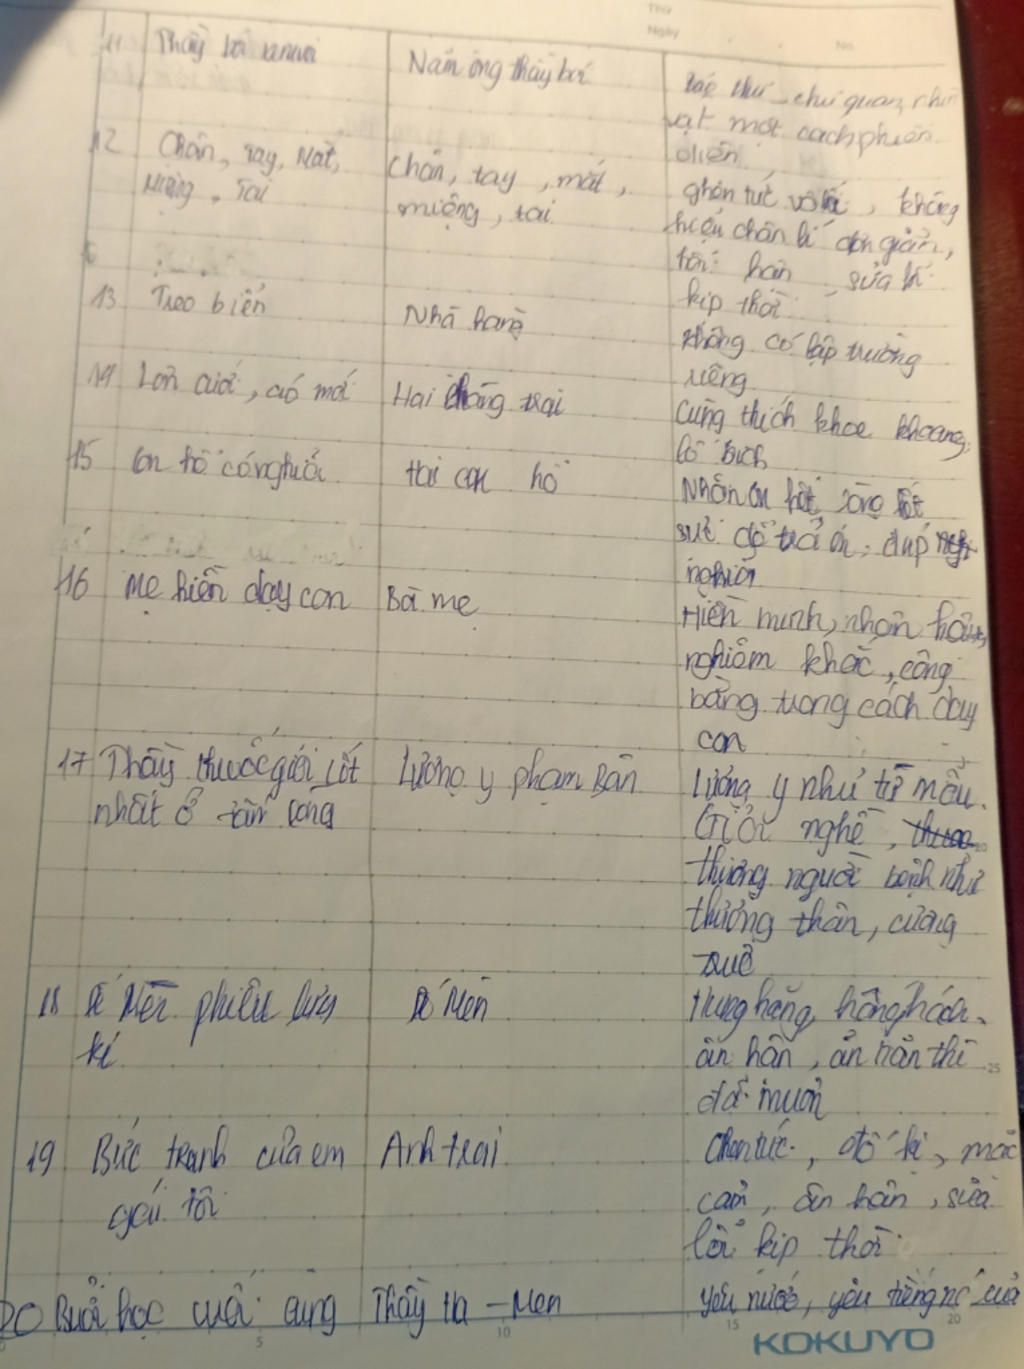 Thứ
Ngày
No.
11 Thầy bói xem voi Năm ông thầy bói chủ quan, nhìn
vật một cách phiến
diện
12 Chân, Tay, Mắt, Chân, tay, mắt, ghen tức vô lí, không
Miệng, Tai miệng, tai hiểu chân lí đơn giản,
hối hận, sửa lỗi
kịp thời
13 Treo biển Nhà hàng không có lập trường
riêng
14 Lợn cưới, áo mới Hai chàng trai cùng thích khoe khoang,
lố bịch
15 Con hổ có nghĩa Hai con hổ Nhận ơn hết lòng
trả ơn, đáp
nghĩa
16 Mẹ hiền dạy con Bà mẹ Hiền minh, nhân hậu,
nghiêm khắc, công
bằng trong cách dạy
con
17 Thầy thuốc giỏi cốt Lương y phạm Bân Lương y như từ mẫu.
nhất ở tấm lòng Giỏi nghề,
20
thương người bệnh như
thương thân, cương
quyết
18 Dế Mèn phiêu lưu Dế Mèn Hung hăng, hống hách,
kí ân hận, ân hận thì
25
đã muộn
19 Bức tranh của em Anh trai Ghen tức, đố kị, mặc
gái tôi cảm, ân hận, sửa
lỗi kịp thời
20 Buổi học cuối cùng Thầy Ha-Men yêu nước, yêu tiếng nói của
5 10 15 20
KOKUYO